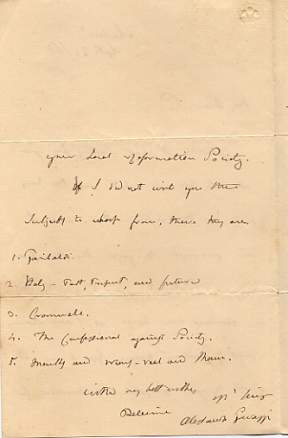 your Local Reformation Society.
If I did not with you the
subjects to choose from, there they are
1. Garibaldi.
2. Italy - Past, Present, and future
3. Cromwell.
4. The Confessional against Society.
5. and wrong - real and sham.
with my best wishes
Believe
Alessandro Gavazzi